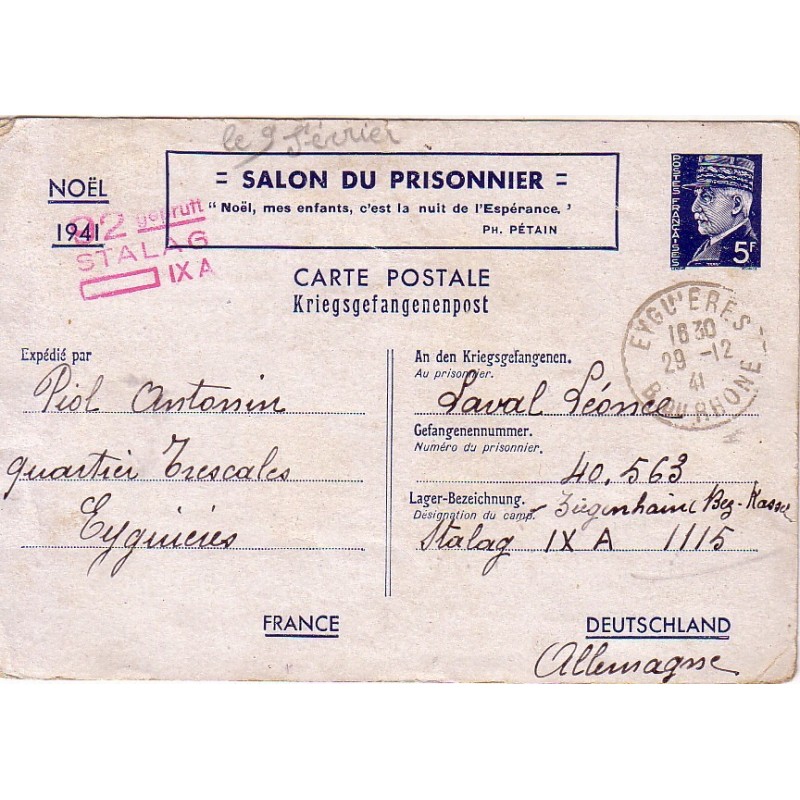 le 9 Février
NOËL
1941
= SALON DU PRISONNIER =
“ Noël, mes enfants, c'est la nuit de l'Espérance. ’
PH. PÉTAIN
POSTES FRANÇAISES
5F
32 geprüft
STALAG
IX A
CARTE POSTALE
Kriegsgefangenenpost
EYGUIERES
16 30
29 -12
41
B. DU RHONE
Expédié par
Piol Antonin
quartier Trescales
Eyguières
FRANCE
An den Kriegsgefangenen.
Au prisonnier.
Laval Léonce
Gefangenennummer.
Numéro du prisonnier.
40.563
Lager-Bezeichnung.
Désignation du camp.
Ziegenhain (Bez-Kassel
Stalag IX A 1115
DEUTSCHLAND
Allemagne